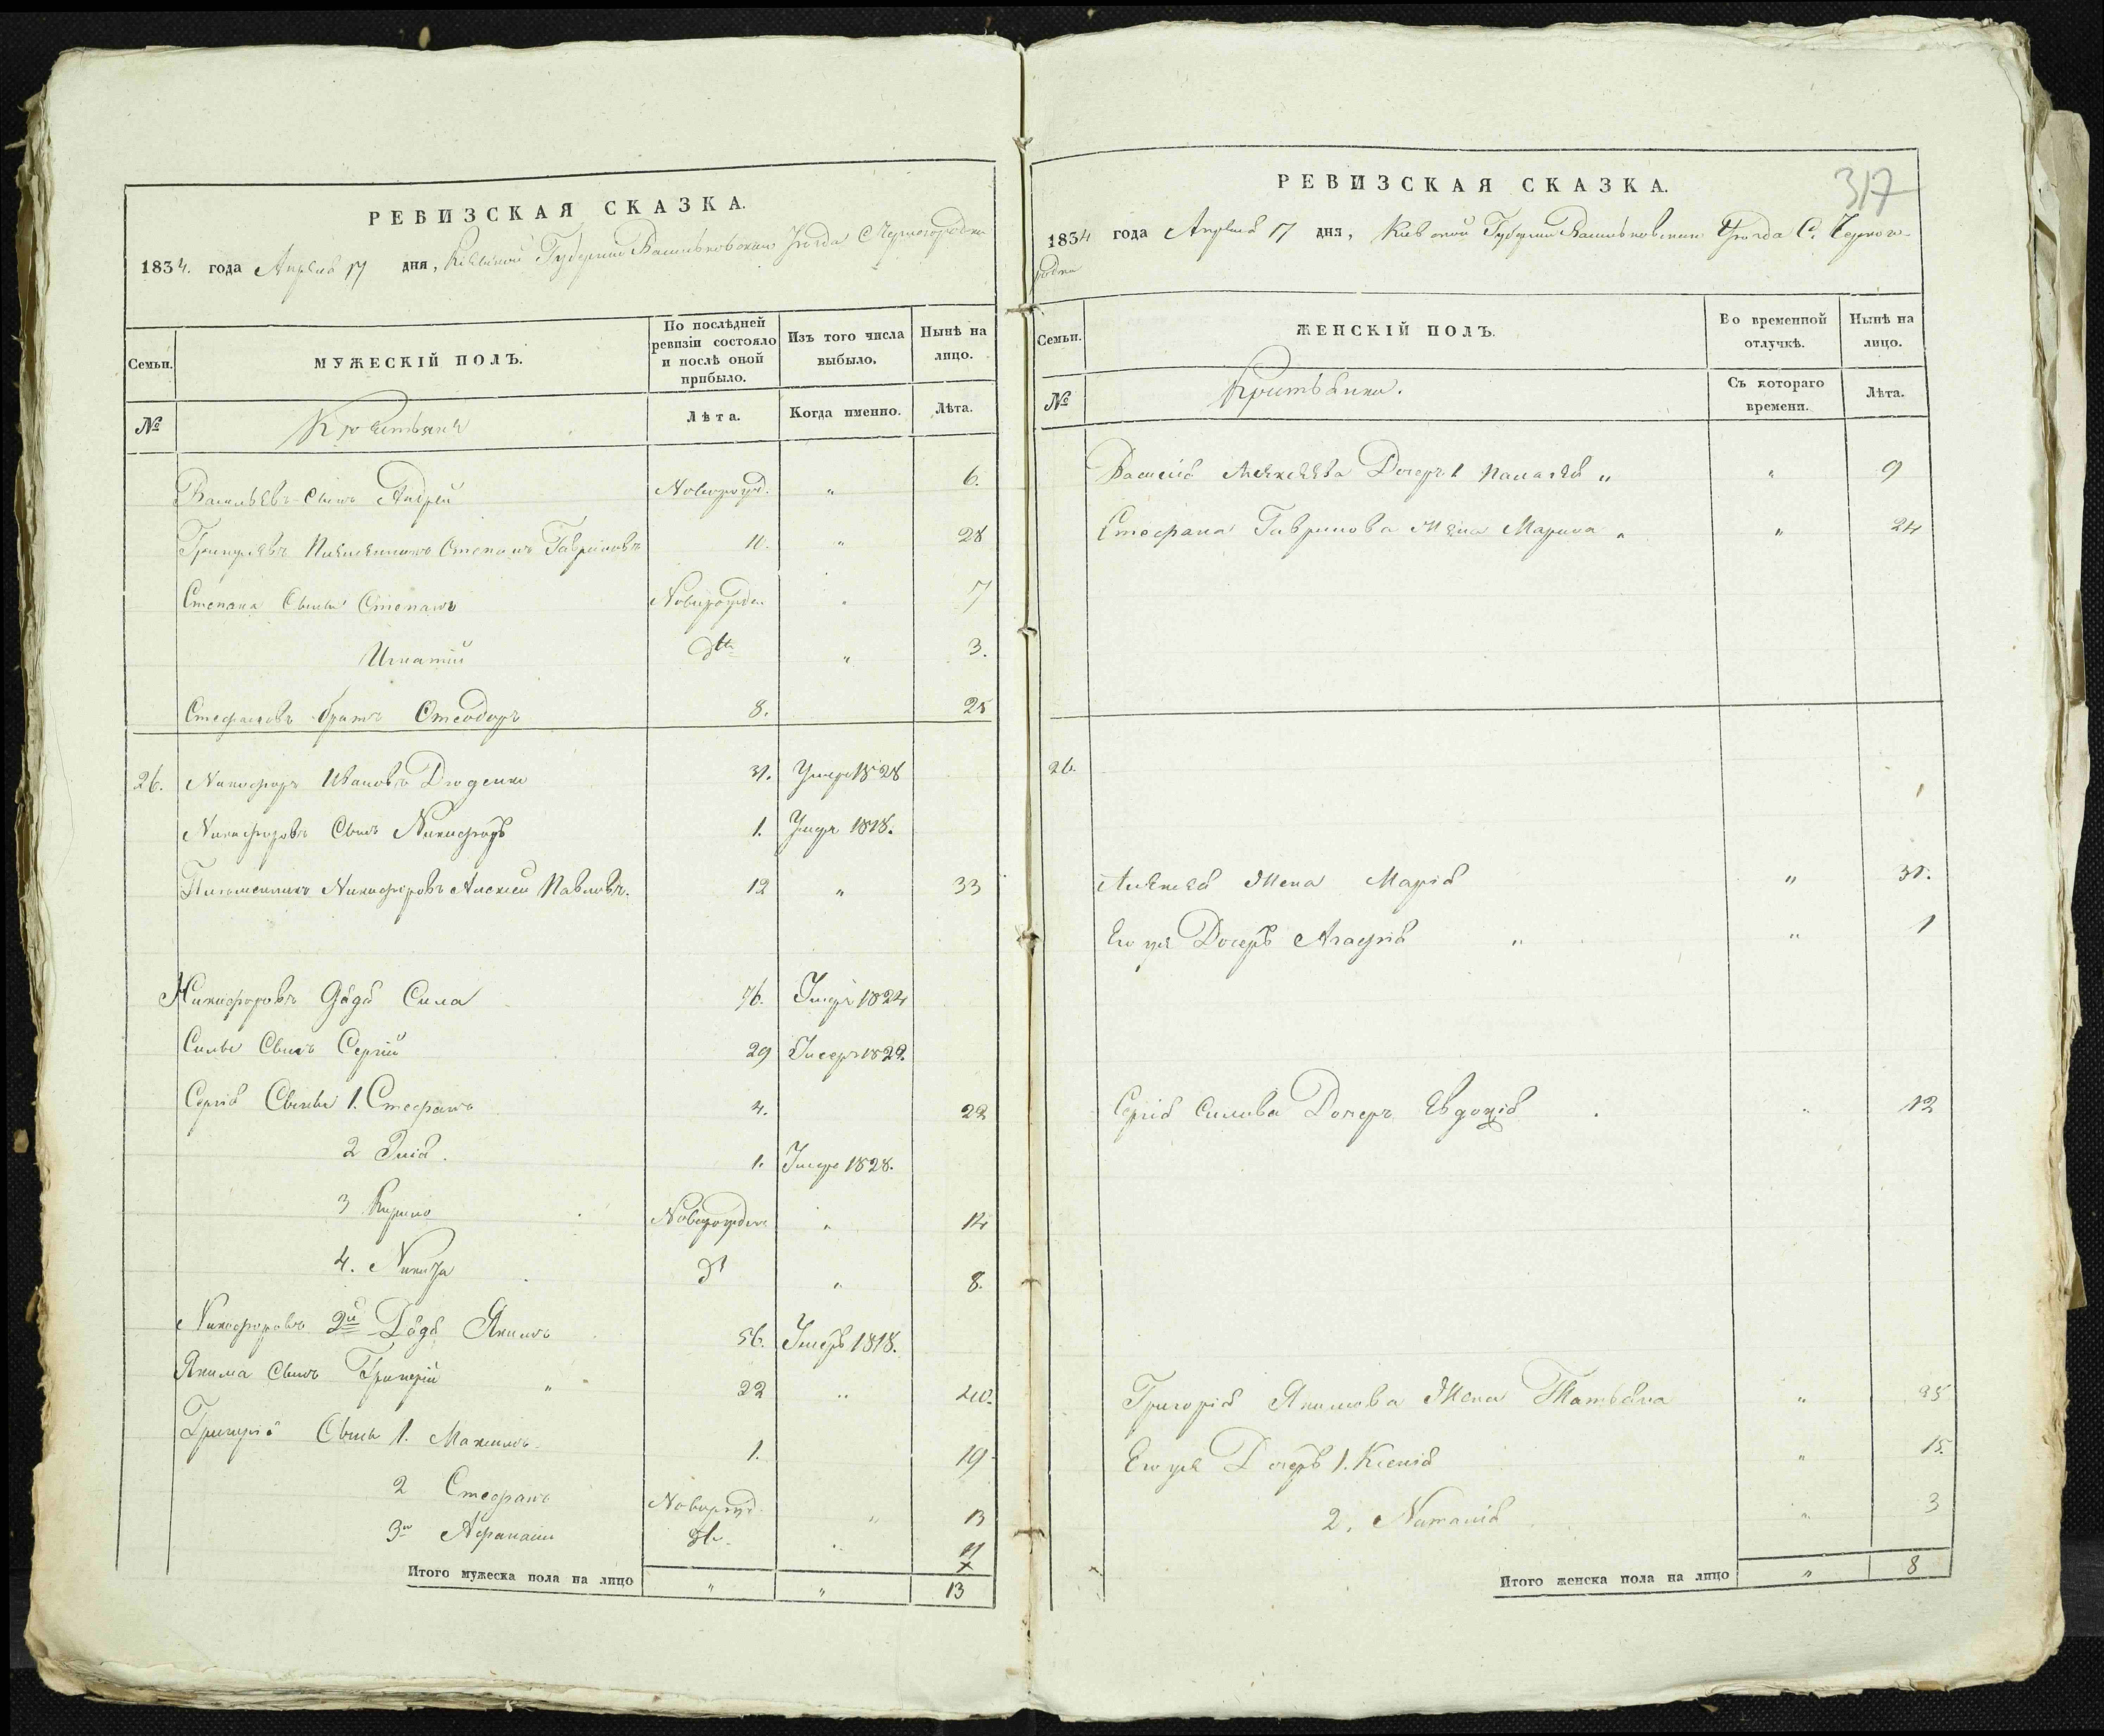 РЕВИЗСКАЯ СКАЗКА.
1834. года Апреля 17 дня, Киевской Губернии Васильковскаго Уезда С Черногородки
Семьи.
МУЖЕСКІЙ ПОЛЪ.
По послѣдней ревизіи состояло и послѣ оной прибыло.
Изъ того числа выбыло.
Нынѣ на лицо.
№
Крестьяне
Лѣта.
Когда именно.
Лѣта.
Васильевъ Сынъ Андрей Новорожд. " 6.
Племянникъ Степанъ Гавриловъ 11. " 28
Степана Сыны Степанъ Новорожден " 7
Игнатий " 3.
Стефановъ братъ Феодоръ 8. 25
26. Никифоръ Ивановъ 31. Умре 1828
Никифоровъ Сынъ Никифоръ 1. Умре 1818.
Племянникъ Никифоровъ Алексей Павловъ. 12 " 33
Никифоровъ Дядя Сила 76. Умеръ 1824
Силы Сынъ Сергий 29 Умеръ 1829.
Сергія Сыны 1. Стефанъ 4. 22
2 Илія. 1. Умре 1828.
3 Кирило Новорожден " 14
4. Никита " 8.
Никифоровъ 2й Дядя Якимъ 56. Умеръ 1818.
Якима Сынъ Григорій " 22 " 40.
Григорія Сыны 1. Максимъ 1. 19
2 Стефанъ Новорожд. " 13
3й Афанасий " 11
х
Итого мужеска пола на лицо " " 13
317
РЕВИЗСКАЯ СКАЗКА.
1834 года Апреля 17 дня, Киевской Губернии Васильковскаго Уезда С. Черного-
родки
Семьи.
ЖЕНСКІЙ ПОЛЪ.
Во временной отлучкѣ.
Нынѣ на лицо.
№
Съ котораго времени.
Лѣта.
Василія Алексеева Дочерь 1 Палагея " " 9
Стефана Гаврилова Жена Марина " " 24
26.
Алексея Жена Марія " 31.
Его же Дочерь Агафія " " 1
Сергія Силова Дочерь Евдокія " 12
Григорія Якимова Жена Татьяна " 35
Его же Дочерь 1. Ксенія " 15.
2. Наталія " 3
Итого женска пола на лицо " 8